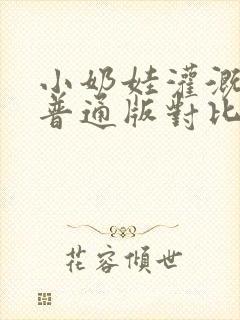 小奶娃灌溉
普通版對比
花容傾世